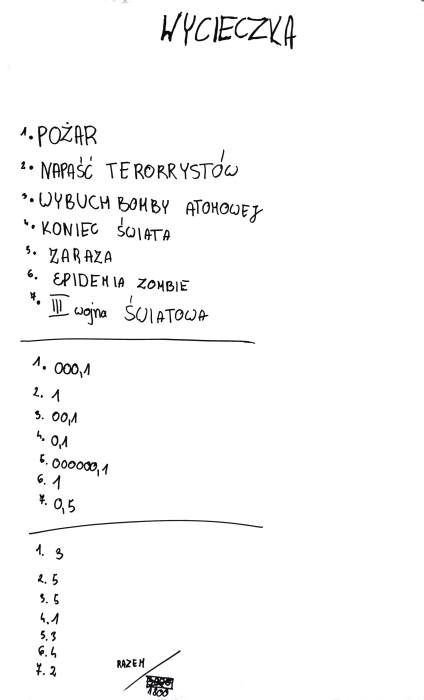 WYCIECZKA
1. POŻAR
2. NAPAŚĆ TERORRYSTÓW
3. WYBUCH BOMBY ATOMOWEJ
4. KONIEC ŚWIATA
5. ZARAZA
6. EPIDEMIA ZOMBIE
7. III wojna ŚWIATOWA
1. 000,1
2. 1
3. 00,1
4. 0,1
5. 000000,1
6. 1
7. 0,5
1. 3
2. 5
3. 5
4. 1
5. 3
6. 4
7. 2
RAZEM
1800